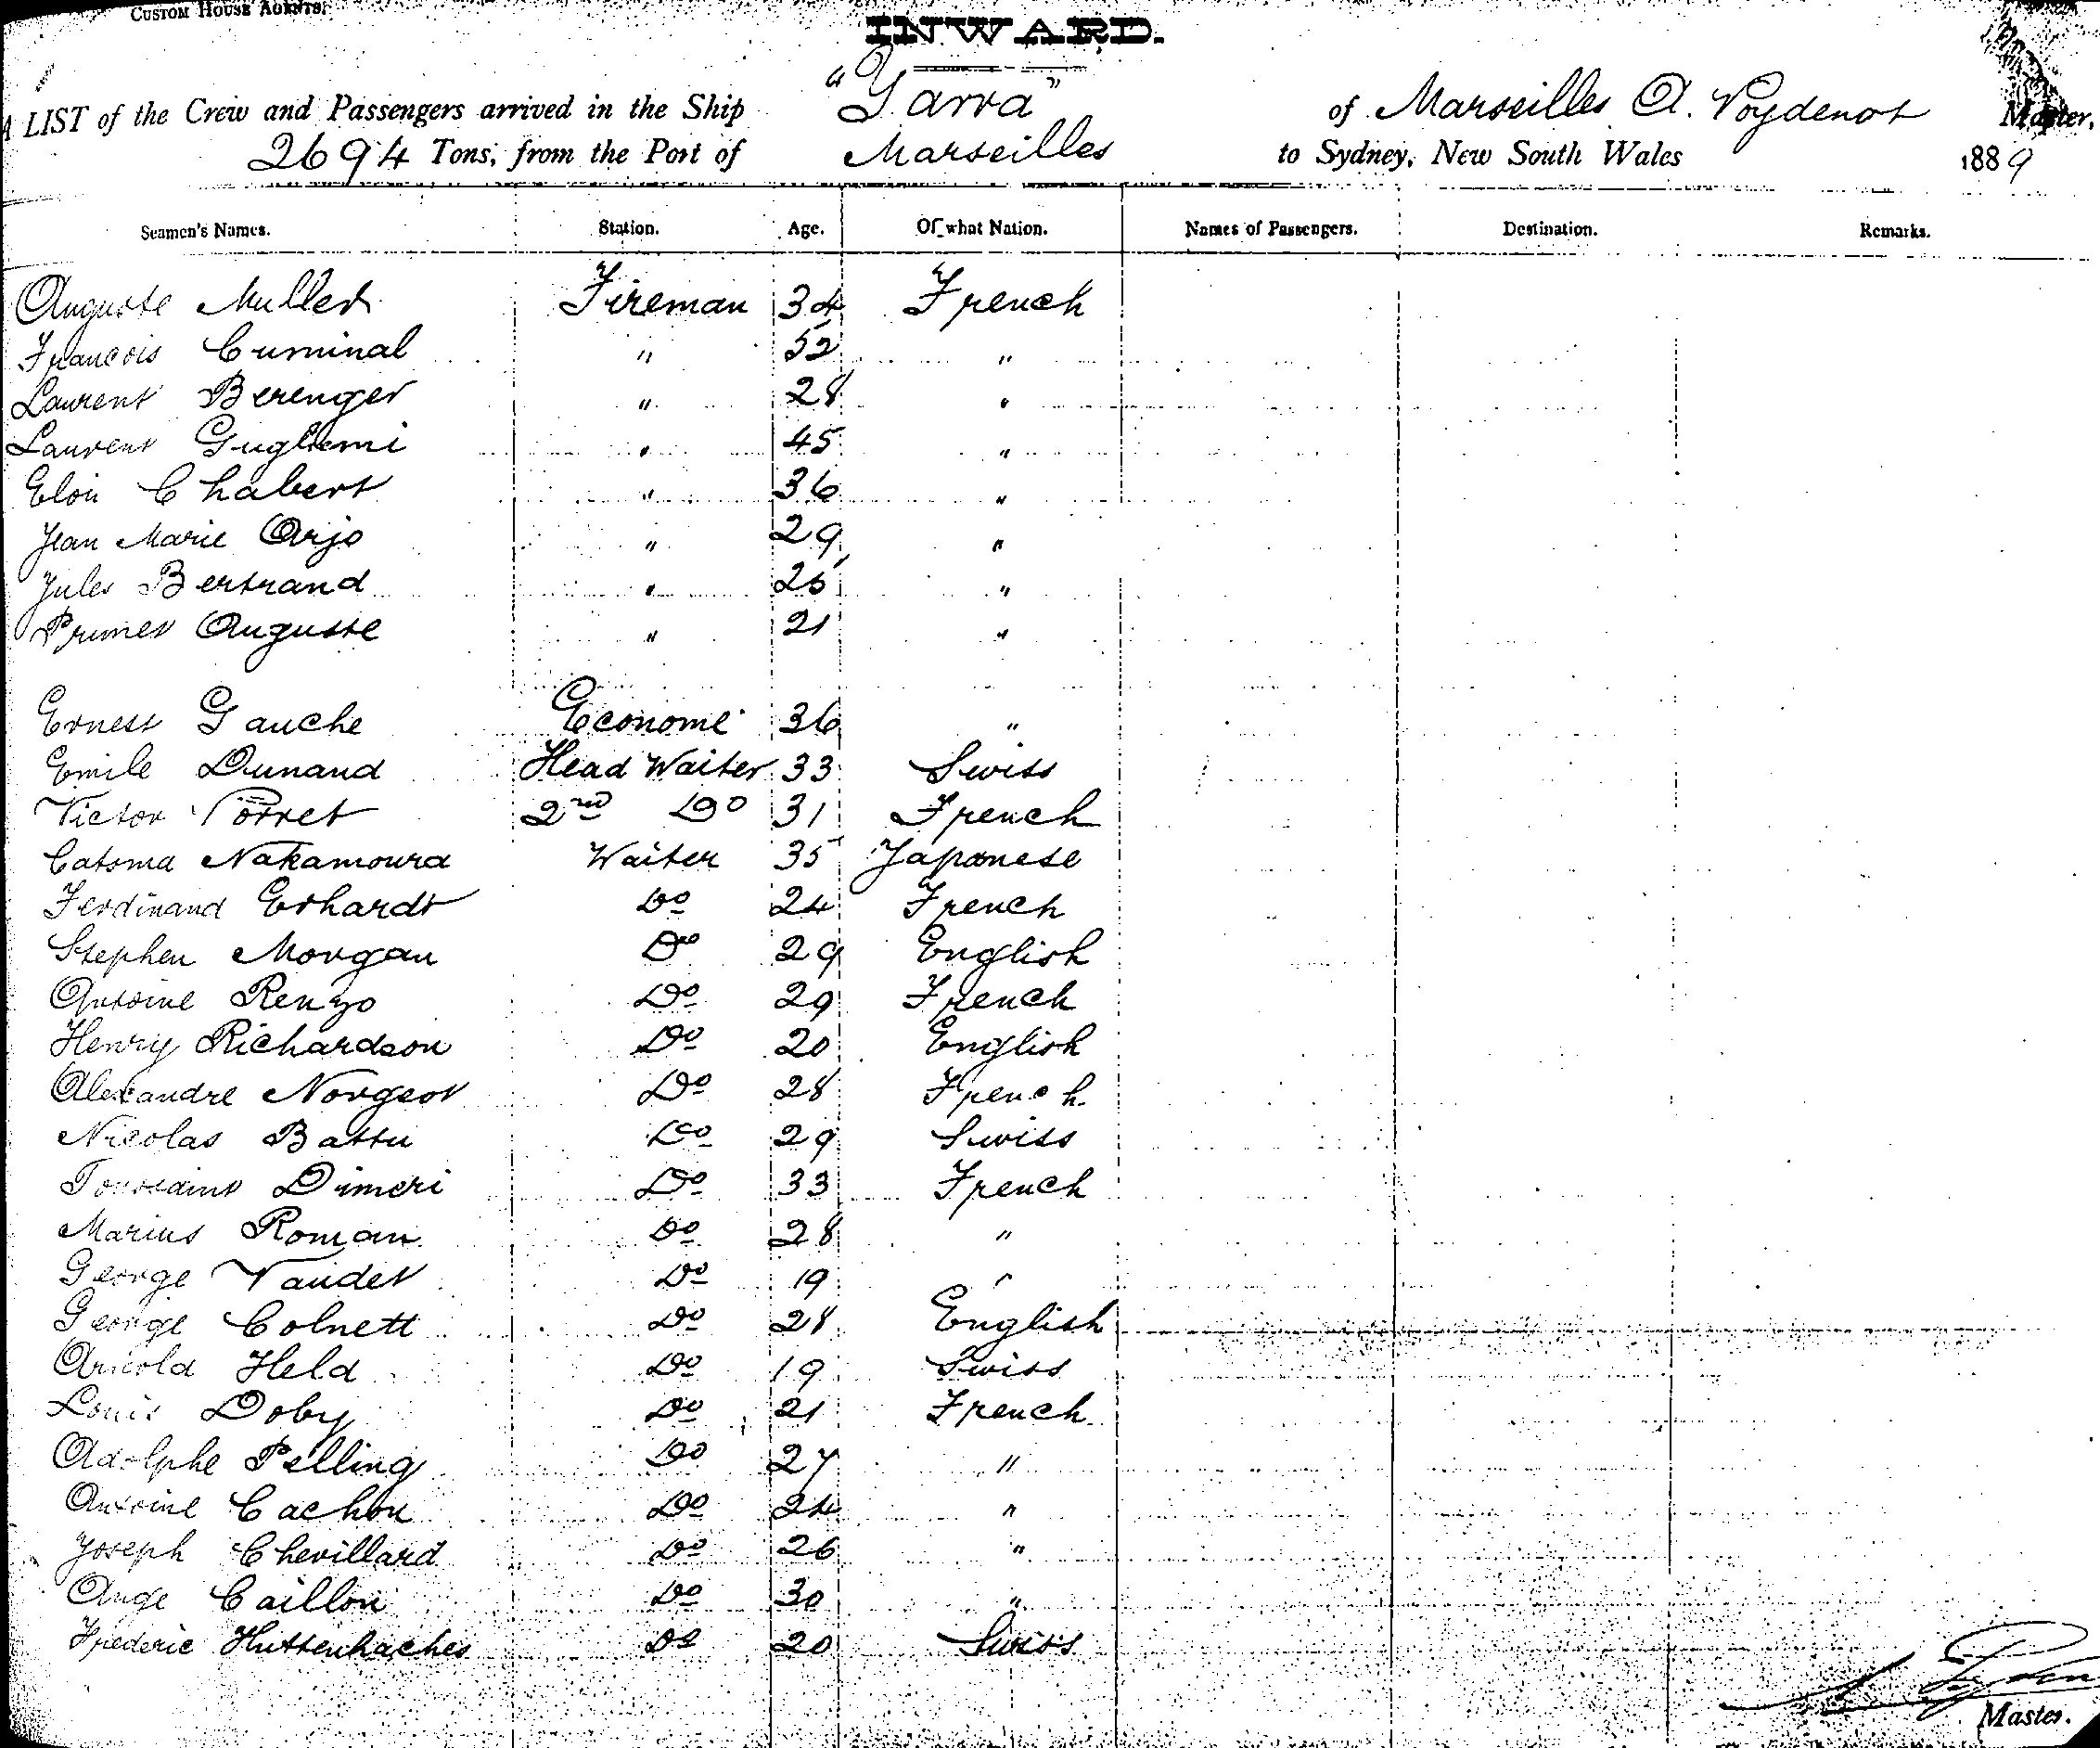 CUSTOM HOUSE AGENTS.
INWARD.
A LIST of the Crew and Passengers arrived in the Ship "Yarra" of Marseilles A. Poydenot Master,
2694 Tons, from the Port of Marseilles to Sydney, New South Wales 1889
Seamen's Names. Station. Age. Of what Nation. Names of Passengers. Destination. Remarks.
Auguste Muller Fireman 34 French
Francois Cuminal " 52 "
Laurent Berenger " 28 "
Laurent Gugliemi " 45 "
Eloi Chabert " 36 "
Jean Marie Orjo " 29 "
Jules Bertrand " 25 "
Primet Auguste " 21 "
Ernest Gauche Econome 36 "
Emile Dunand Head Waiter 33 Swiss
Victor Porret 2nd Do 31 French
Catsma Nakamoura Waiter 35 Japanese
Ferdinand Erhardt Do 24 French
Stephen Morgan Do 29 English
Antoine Renzo Do 29 French
Henry Richardson Do 20 English
Alexandre Norgeot Do 28 French
Nicolas Battu Do 29 Swiss
Toussaint Dimeri Do 33 French
Marius Roman Do 28 "
George Vaudet Do 19 "
George Colnett Do 28 English
Arnold Held Do 19 Swiss
Louis Doby Do 21 French
Adolphe Pelling Do 27 "
Antoine Cachou Do 24 "
Joseph Chevillard Do 26 "
Ange Caillon Do 30 "
Frederic Huttenhacher Do 20 Swiss
Master.